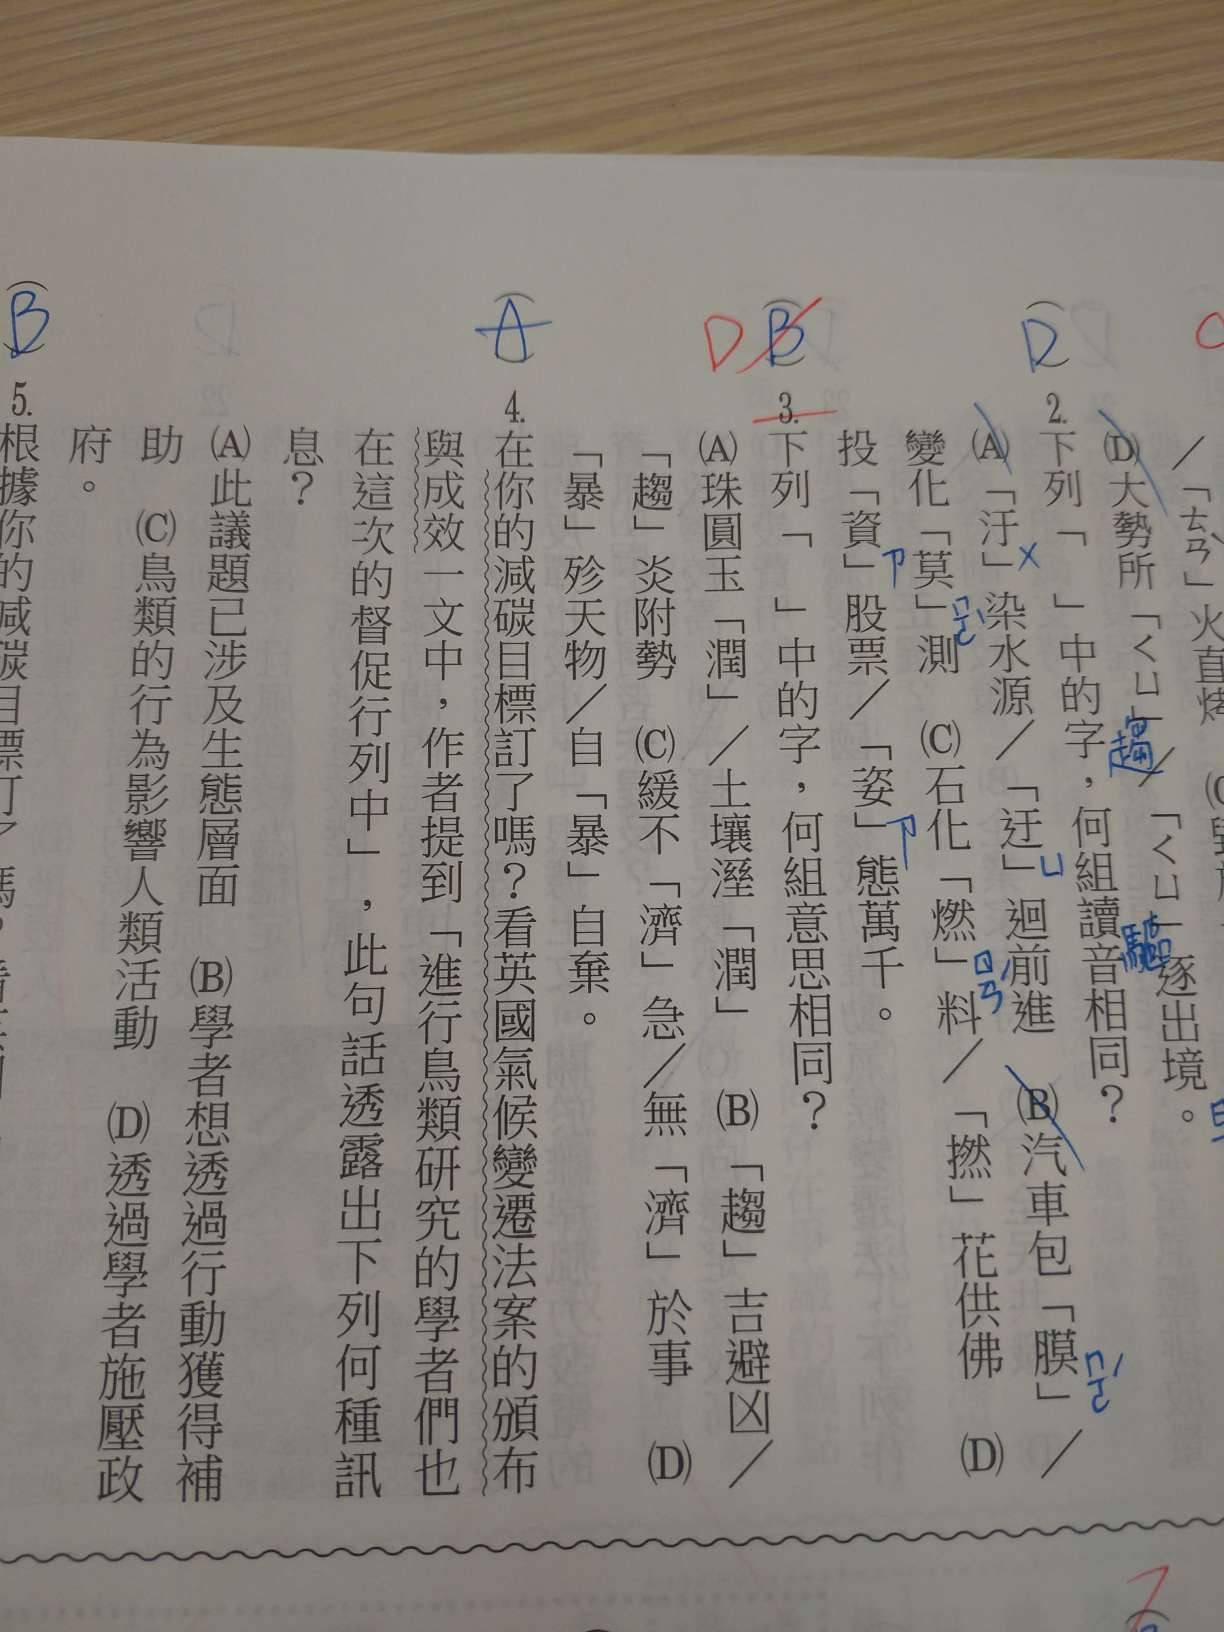 ／「ㄊㄢˋ」火直烤
(D)大勢所「ㄑㄩ」／「ㄑㄩ」逐出境。
趨
驅
D
2.下列「　」中的字，何組讀音相同？
(A)「汙」染水源／「迂」迴前進　(B)汽車包「膜」／
ㄨ
ㄩ
ㄇㄛˊ
變化「莫」測　(C)石化「燃」料／「撚」花供佛　(D)
ㄇㄛˋ
ㄖㄢˊ
投「資」股票／「姿」態萬千。
ㄗ
ㄗ
B
D
3.下列「　」中的字，何組意思相同？
(A)珠圓玉「潤」／土壤溼「潤」　(B)「趨」吉避凶／
「趨」炎附勢　(C)緩不「濟」急／無「濟」於事　(D)
「暴」殄天物／自「暴」自棄。
A
4.在你的減碳目標訂了嗎？看英國氣候變遷法案的頒布
與成效一文中，作者提到「進行鳥類研究的學者們也
在這次的督促行列中」，此句話透露出下列何種訊
息？
(A)此議題已涉及生態層面　(B)學者想透過行動獲得補
助　(C)鳥類的行為影響人類活動　(D)透過學者施壓政
府。
B
5.根據你的減碳目標訂了嗎？